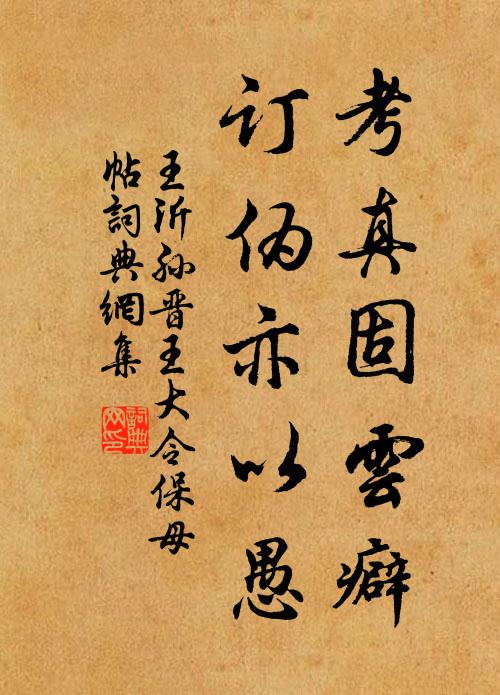 考真固雲癖
订伪亦以愚
王沂孙晋王大令保母
帖詞典網集
詞典网印